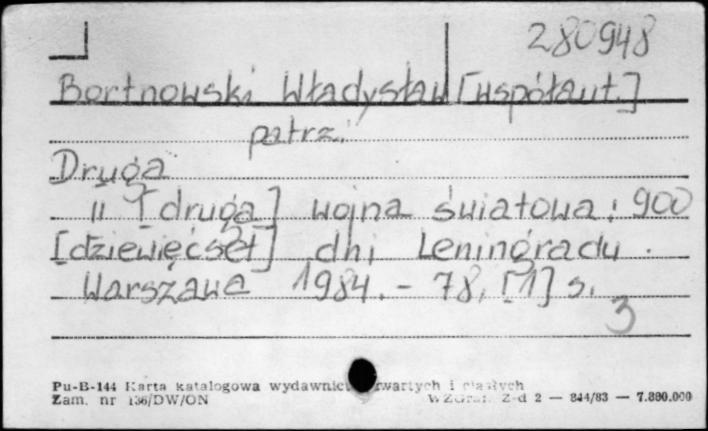 280948
Bortnowski Władysław [współaut.]
patrz:
Druga
II [druga] wojna światowa : 900
[dziewięćset] dni Leningradu.
Warszawa 1984. - 78, [1] s.
3
Pu-B-144 Karta katalogowa wydawnictw zwartych i ciągłych
Zam. nr 136/DW/ON WZGraf. Z-d 2 — 844/83 — 7.880.000